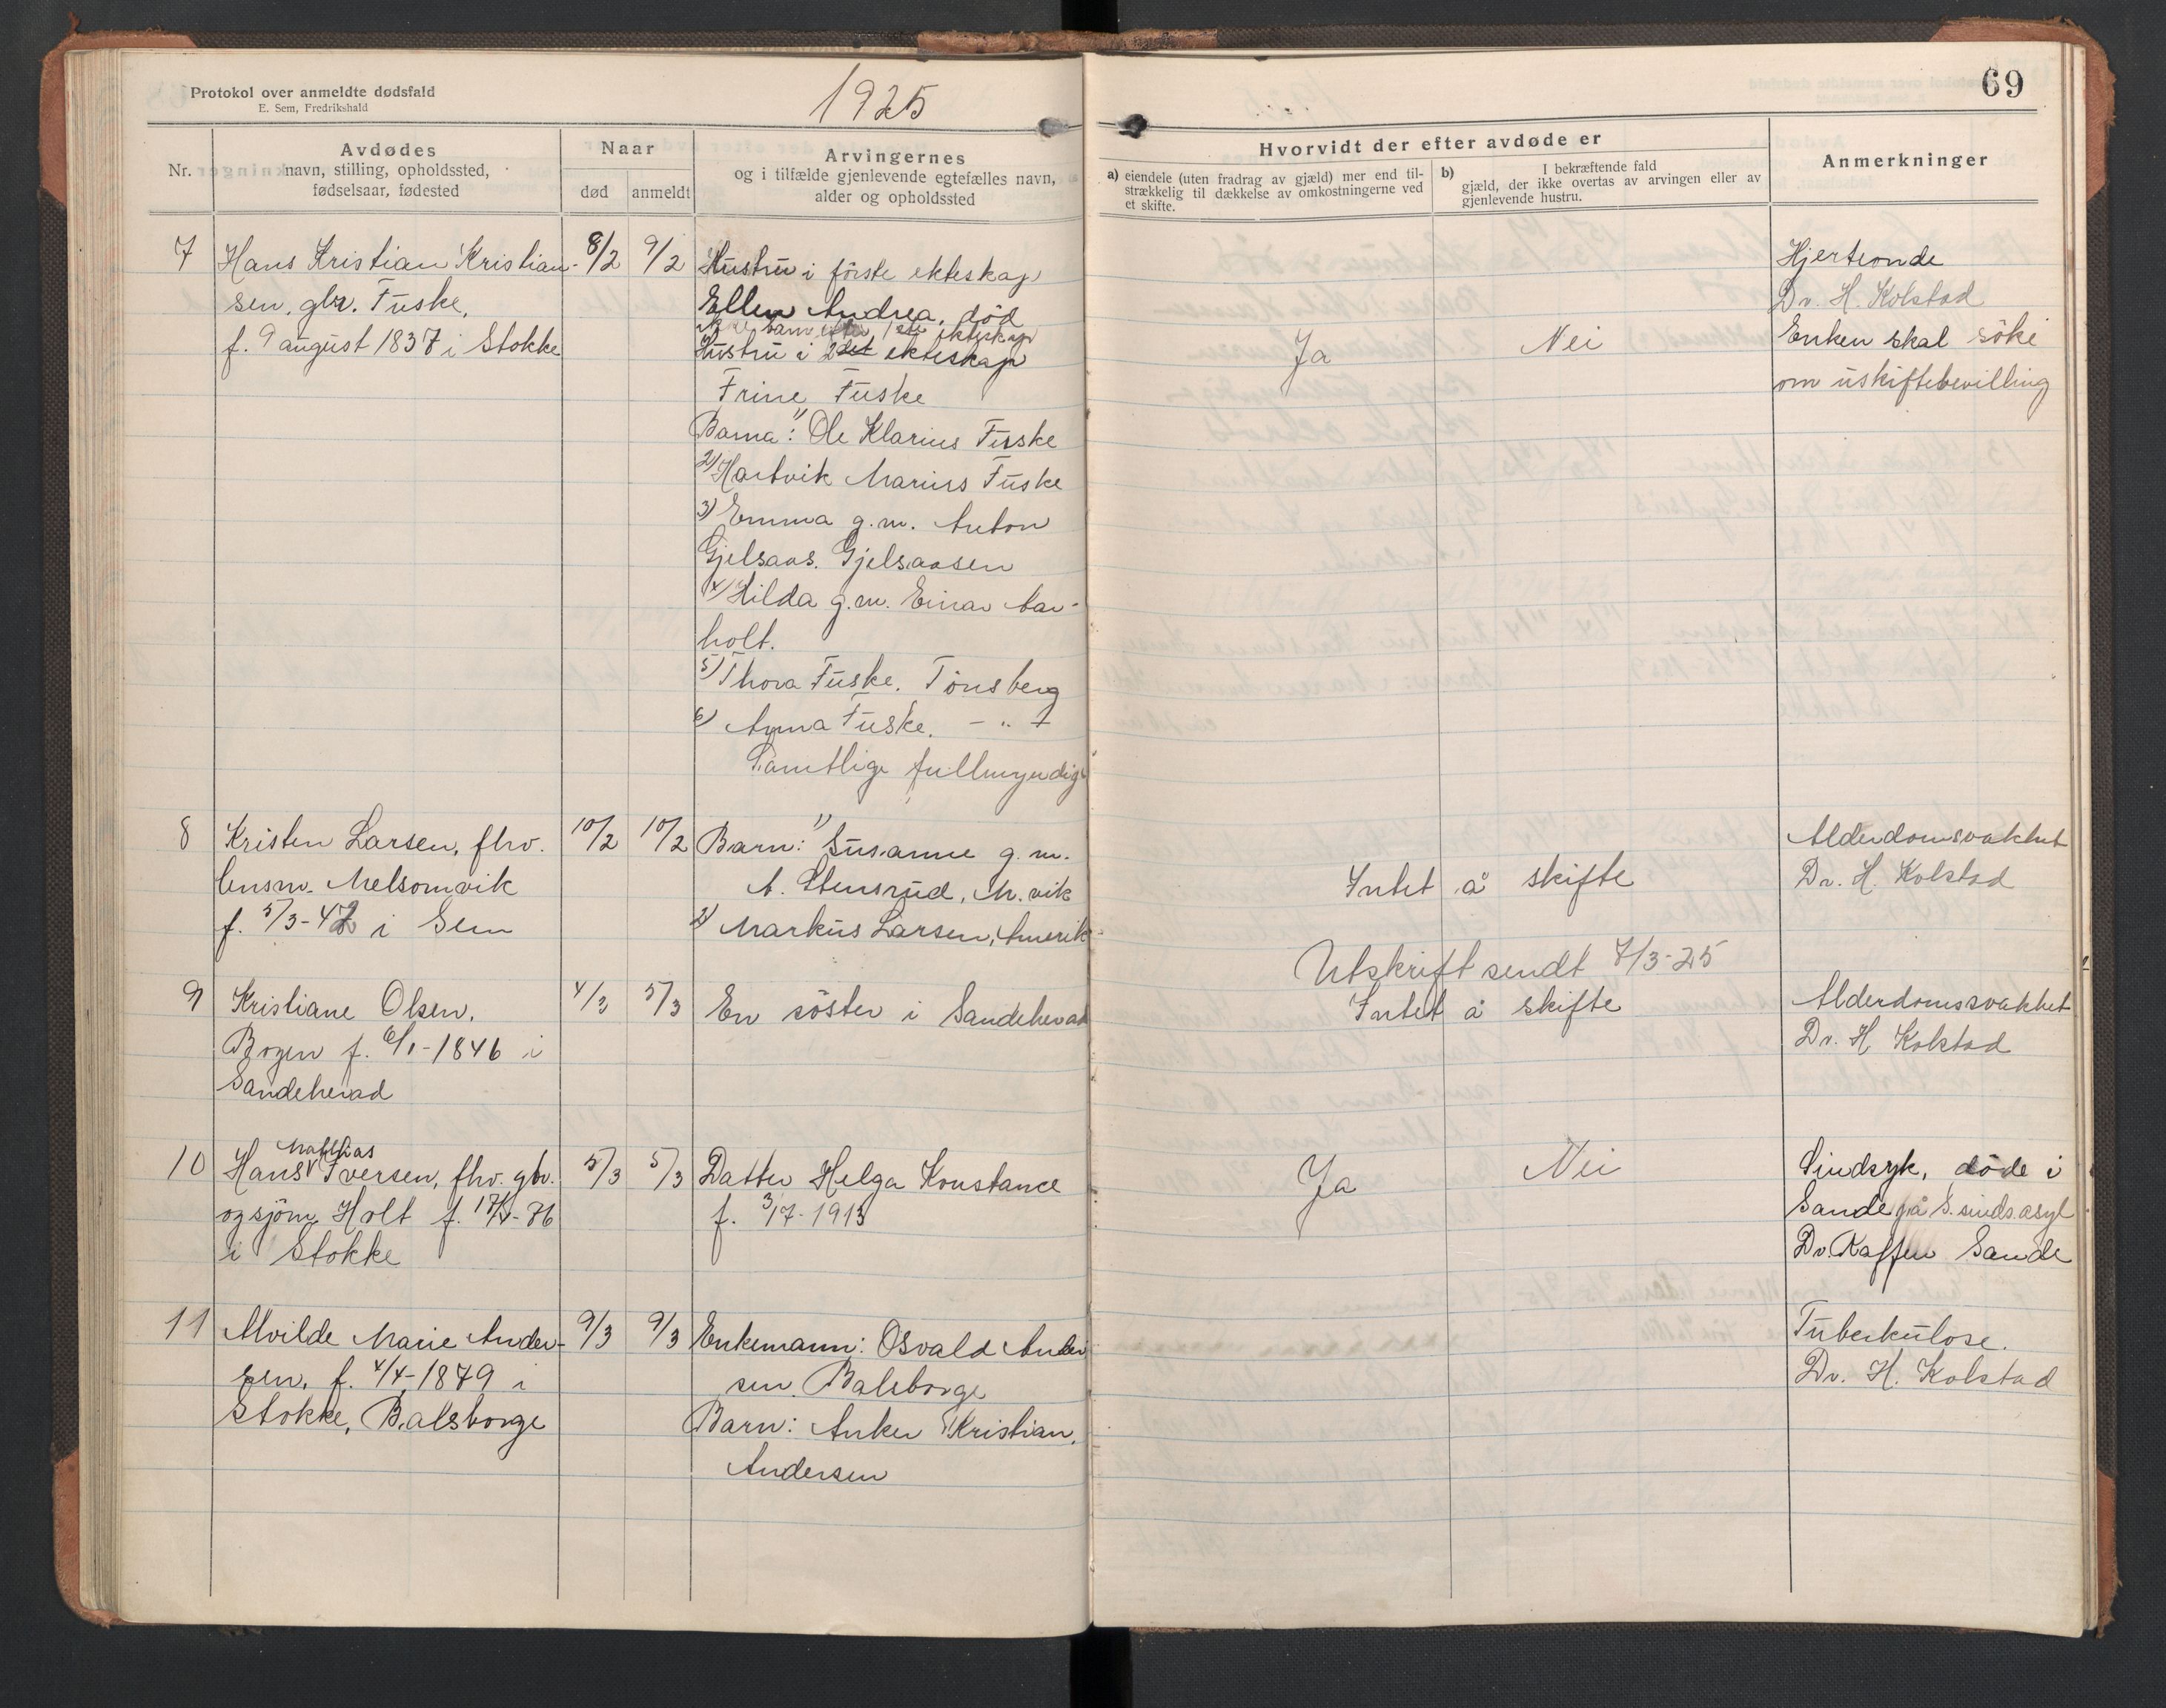 Protokol over anmeldte dødsfald
E. Sem, Fredrikshald
1925
69
Nr.
Avdødes
navn, stilling, opholdssted,
fødselsaar, fødested
Naar
død
anmeldt
Arvingernes
og i tilfælde gjenlevende egtefælles navn,
alder og opholdssted
Hvorvidt der efter avdøde er
a) eiendele (uten fradrag av gjæld) mer end til-
strækkelig til dækkelse av omkostningerne ved
et skifte.
b) I bekræftende fald
gjæld, der ikke overtas av arvingen eller av
gjenlevende hustru.
Anmerkninger
7
Hans Kristian Kristian-
sen, gbr. Fuske,
f. 9 august 1837 i Stokke
8/2
9/2
Hustru i første ekteskap
Ellen Andrea, død
barn efter 1ste ekteskap
Hustru i 2det ekteskap
Trine Fuske
Barna: 1) Ole Klarius Fuske
2) Hartvik Marius Fuske
3) Emma g.m. Anton
Gjelsaas. Gjelsaasen
4) Hilda g.m. Einar Aar-
holt.
5) Thora Fuske. Tønsberg
6) Anna Fuske. - " -
Samtlige fullmyndig
Ja
Nei
Hjerteonde
Dr. H. Kolstad
Enken skal søke
om uskiftebevilling
8
Kristen Larsen, fhv.
lensm. Melsomvik
f. 5/3-42 i Sem
10/2
10/2
Barn: 1) Susanne g. m.
A. Stensrud, M.vik
2) Markus Larsen, Amerik
Intet å skifte
Utskrift sendt 7/3-25
Alderdomsvakhet
Dr. H. Kolstad
9
Kristiane Olsen,
Bogen f. 6/1-1846 i
Sandeherad
4/3
5/3
En søster i Sandeherad
Intet å skifte
Alderdomssvakhet
Dr. H. Kolstad
10
Mathias
Hans Iversen, fhv. gbr.
og sjøm. Holt f. -76
i Stokke
5/3
5/3
Datter Helga Konstance
f. 3/7-1913
Ja
Nei
Sindsyk, døde i
Sande på S. sinds.asyl
Dr. Sande
11
Alvilde Marie Ander-
sen, f. 4/4-1879 i
Stokke, Balsborge
9/3
9/3
Enkemann: Osvald Ander
sen. Balsborge
Barn: Anker Kristian
Andersen
Tuberkulose.
Dr. H. Kolstad